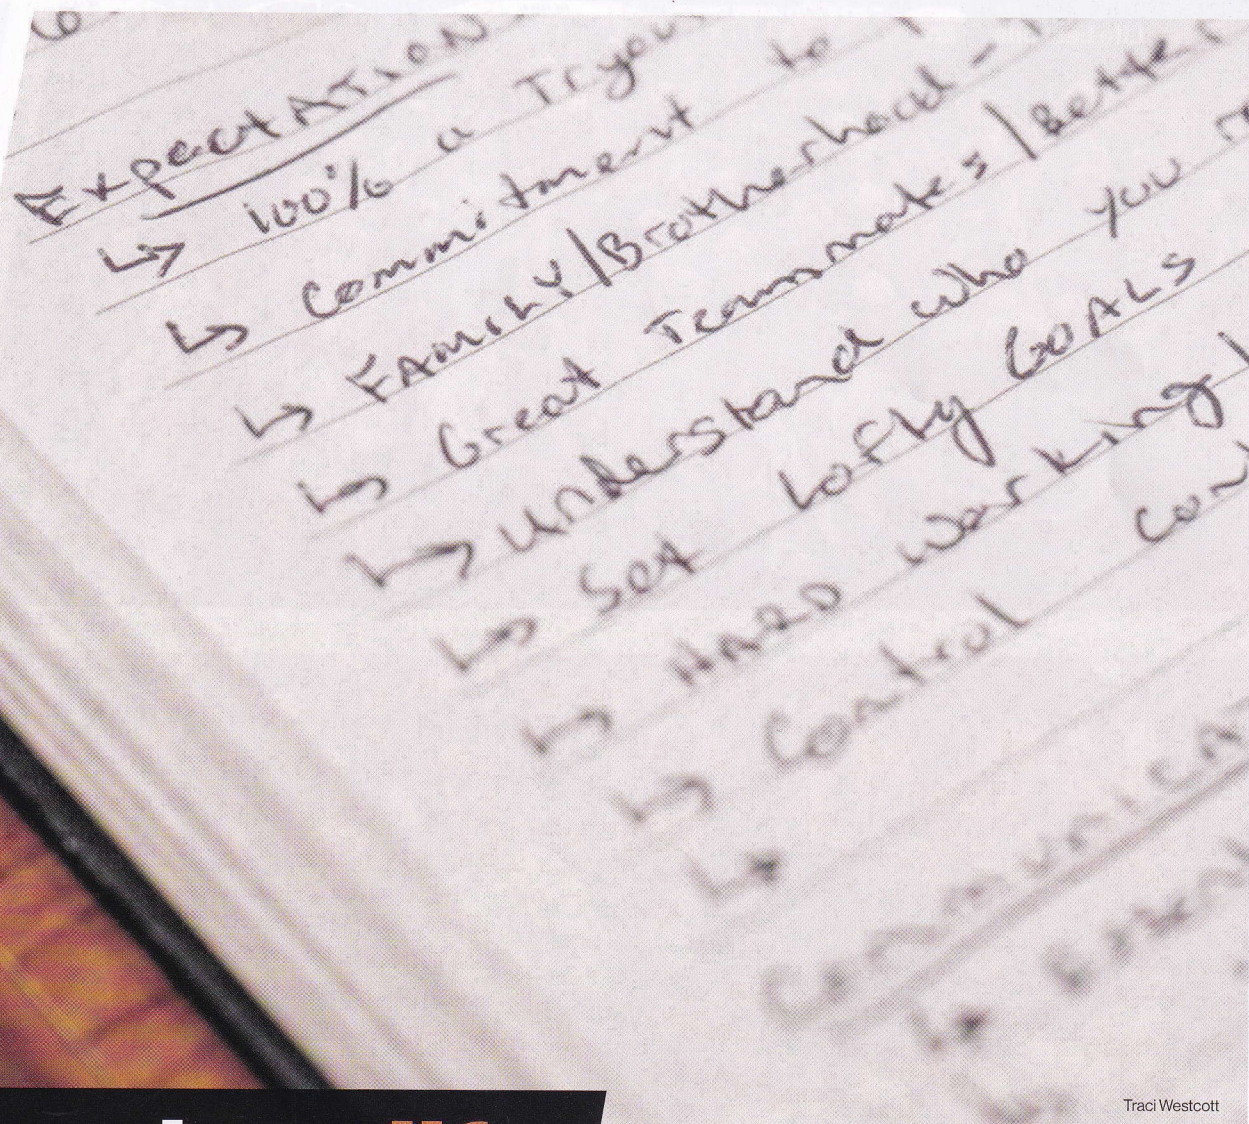 ExpectATION
↳ 100% a Tryou
↳ Commitment to
↳ FAMILY/Brotherhood -
↳ Great Teammates/Better
↳ Understand who you
↳ Set Lofty GOALS
↳ HARD working
↳ Control
↳
Traci Westcott